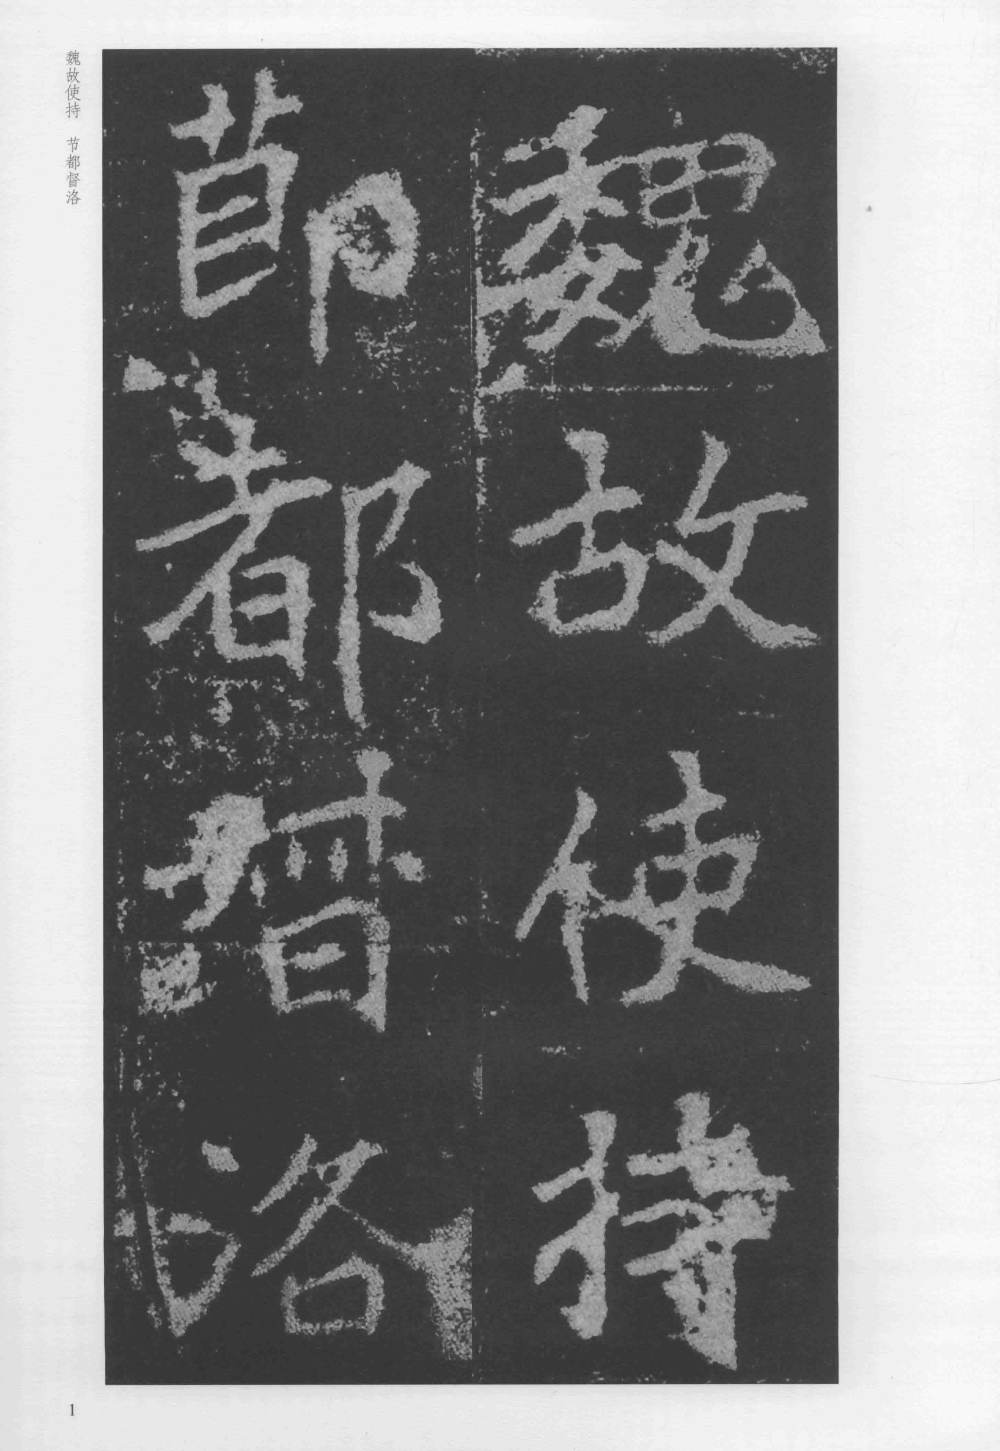 魏故使持
節都督洛
魏故使持 节都督洛
1